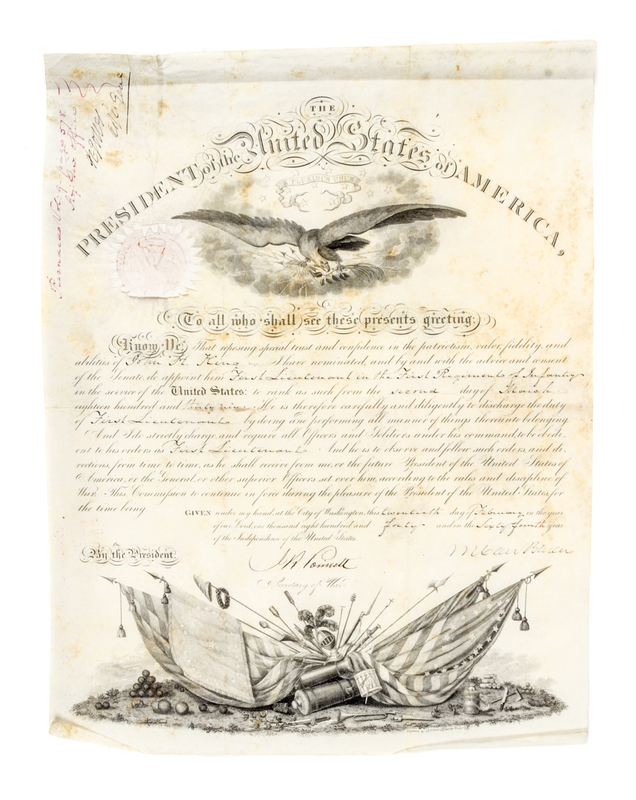 THE
PRESIDENT of the United States of AMERICA,
E PLURIBUS UNUM
To all who shall see these presents greeting:
Know Ye, That reposing special trust and confidence in the patriotism, valor, fidelity, and
abilities of John H. King I have nominated, and by and with the advice and consent
of the Senate, do appoint him First Lieutenant in the First Regiment of Infantry
in the service of the United States: to rank as such from the second day of March
eighteen hundred and thirty nine. He is therefore carefully and diligently to discharge the duty
of First Lieutenant by doing and performing all manner of things thereunto belonging.
And I do strictly charge, and require all Officers and Soldiers under his command, to be obedi-
ent to his orders as First Lieutenant And he is to observe and follow such orders, and di-
rections, from time to time, as he shall receive from me, or the future President of the United States of
America, or the General, or other superior Officers set over him, according to the rules and discipline of
War. This Commission to continue in force during the pleasure of the President of the United States, for
the time being.
GIVEN under my hand, at the City of Washington, this twentieth day of February in the year
of our Lord, one thousand eight hundred and forty and in the Sixty fourth year
of the Independence of the United States.
By the President,
M Van Buren
J R Poinsett
Secretary of War.